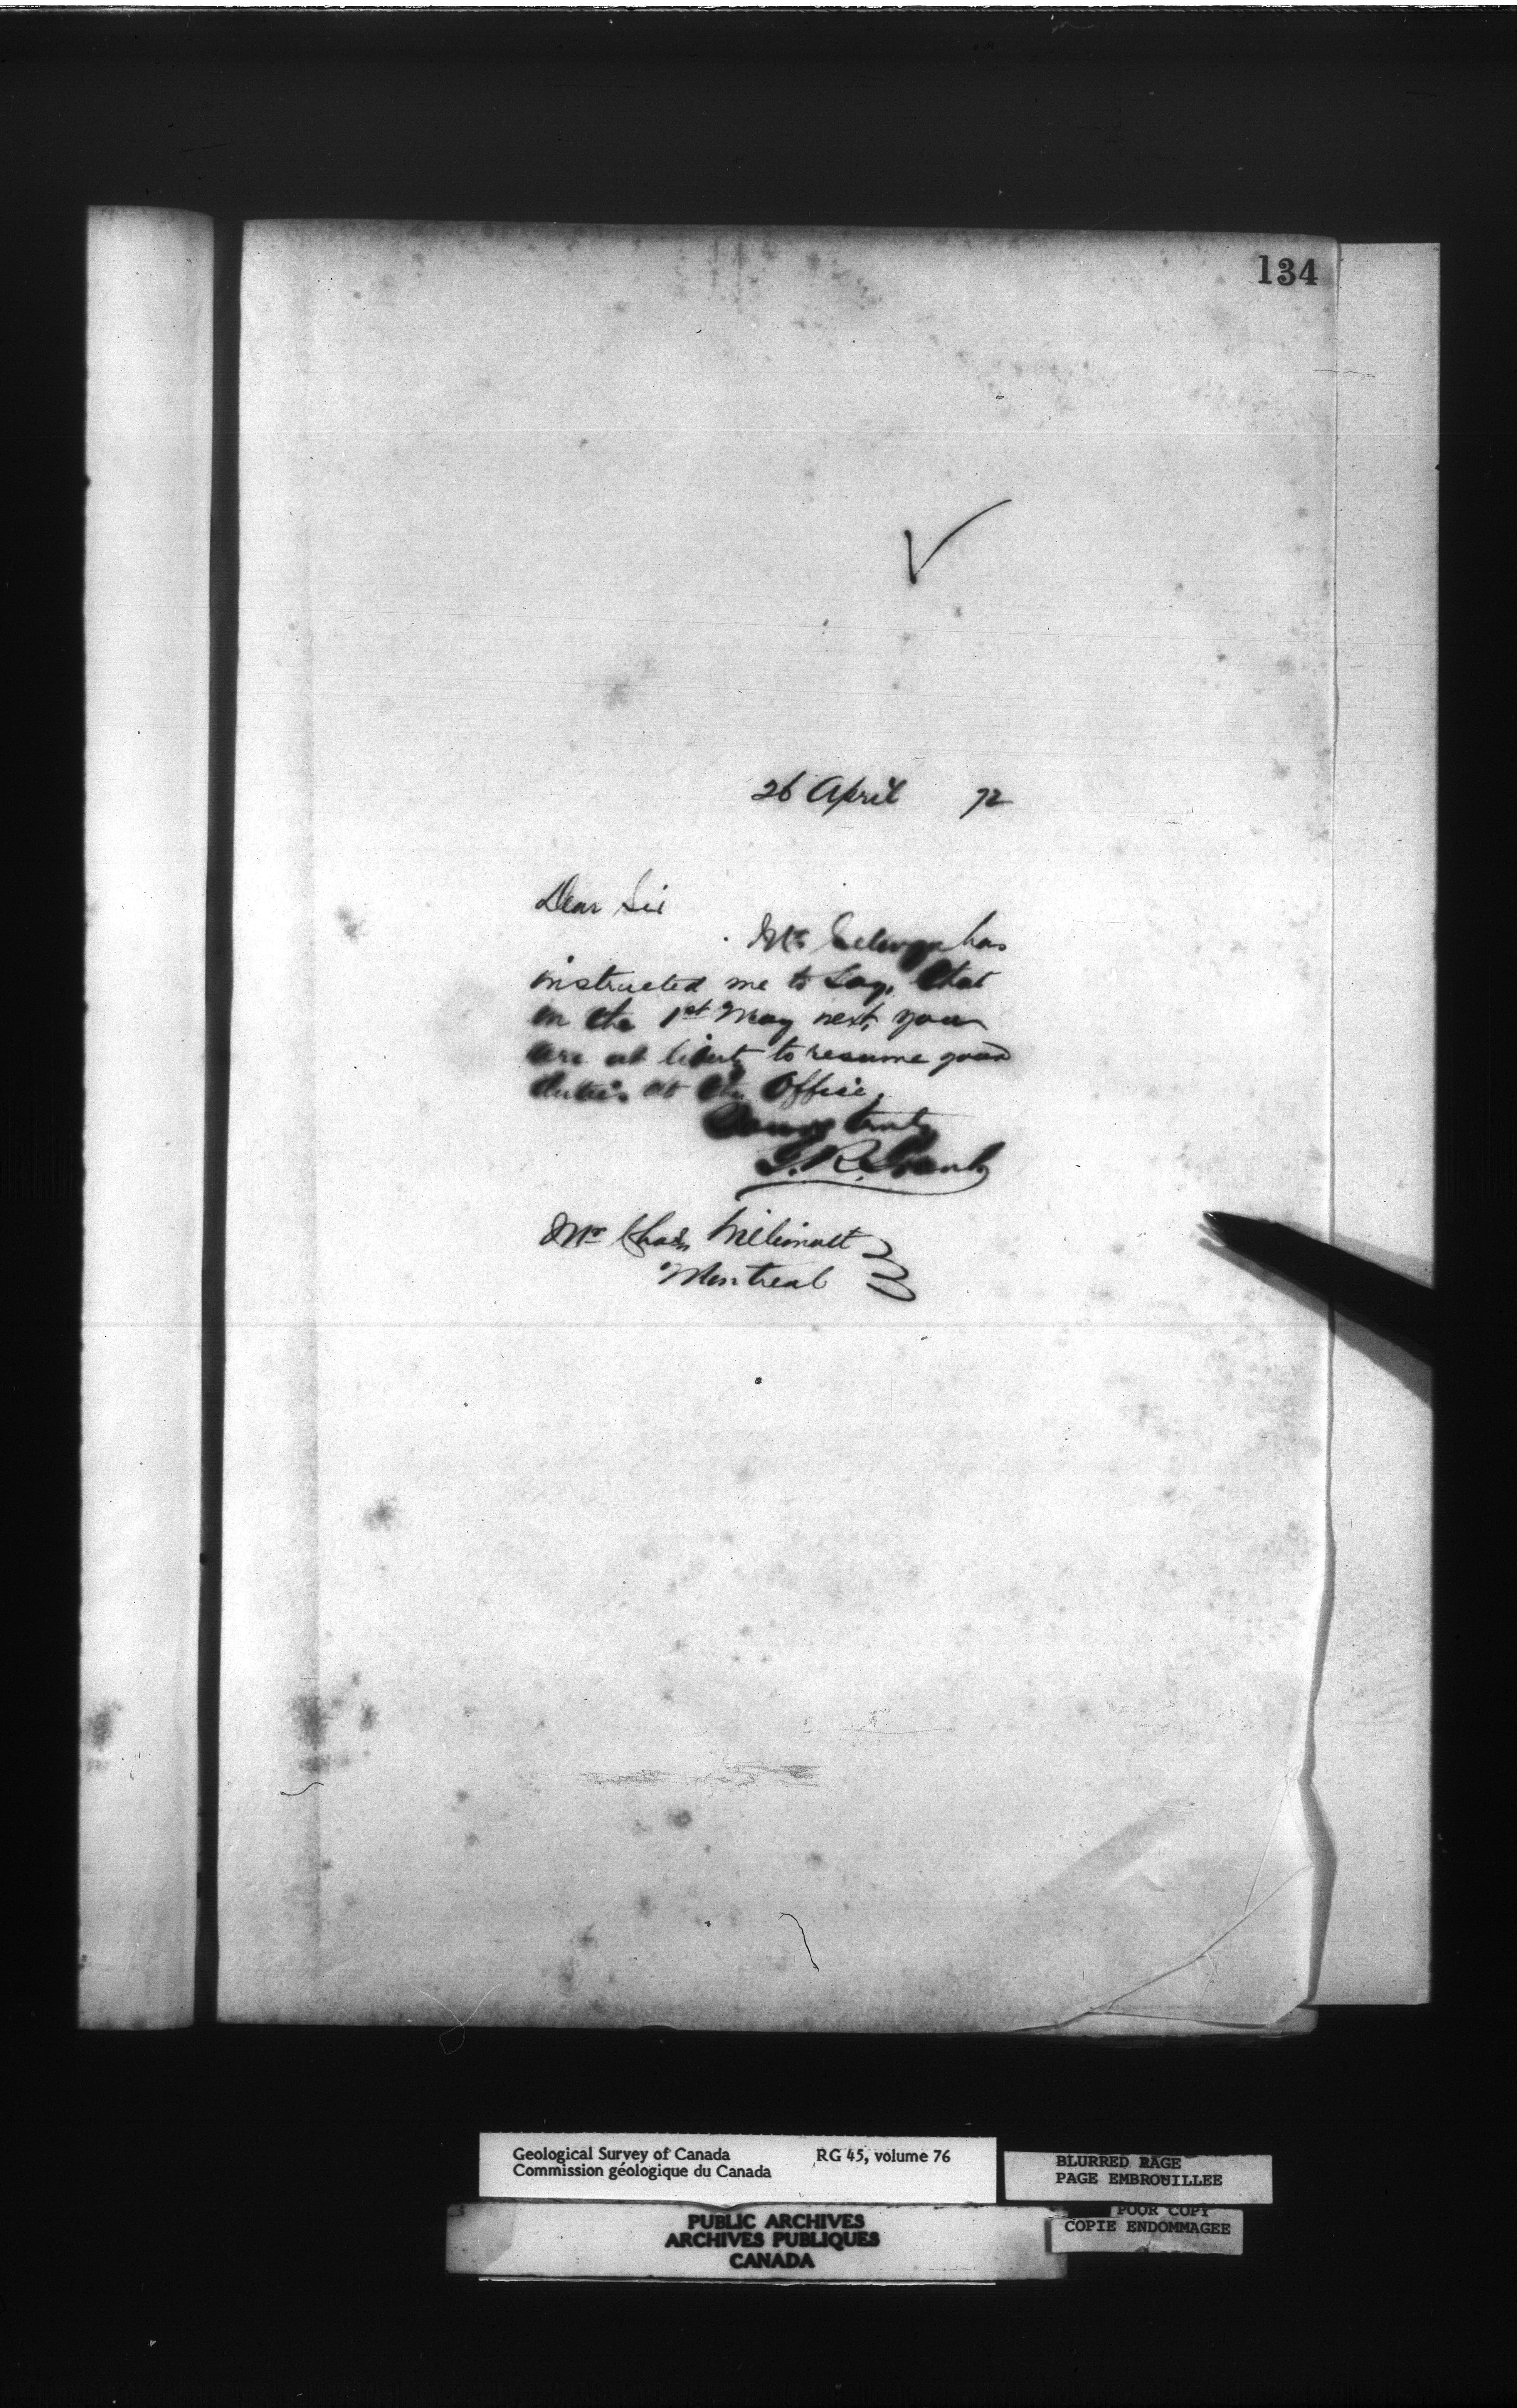 134
26 April 72
Dear Sir
Mr Selwyn has
instructed me to say, that
on the 1st May next, you
are at liberty to resume your
duties at the Office.
Yours truly
G. R. Grant
Mr Chas
Montreal
Geological Survey of Canada RG 45, volume 76
Commission géologique du Canada
BLURRED PAGE
PAGE EMBROUILLEE
POOR COPY
COPIE ENDOMMAGEE
PUBLIC ARCHIVES
ARCHIVES PUBLIQUES
CANADA